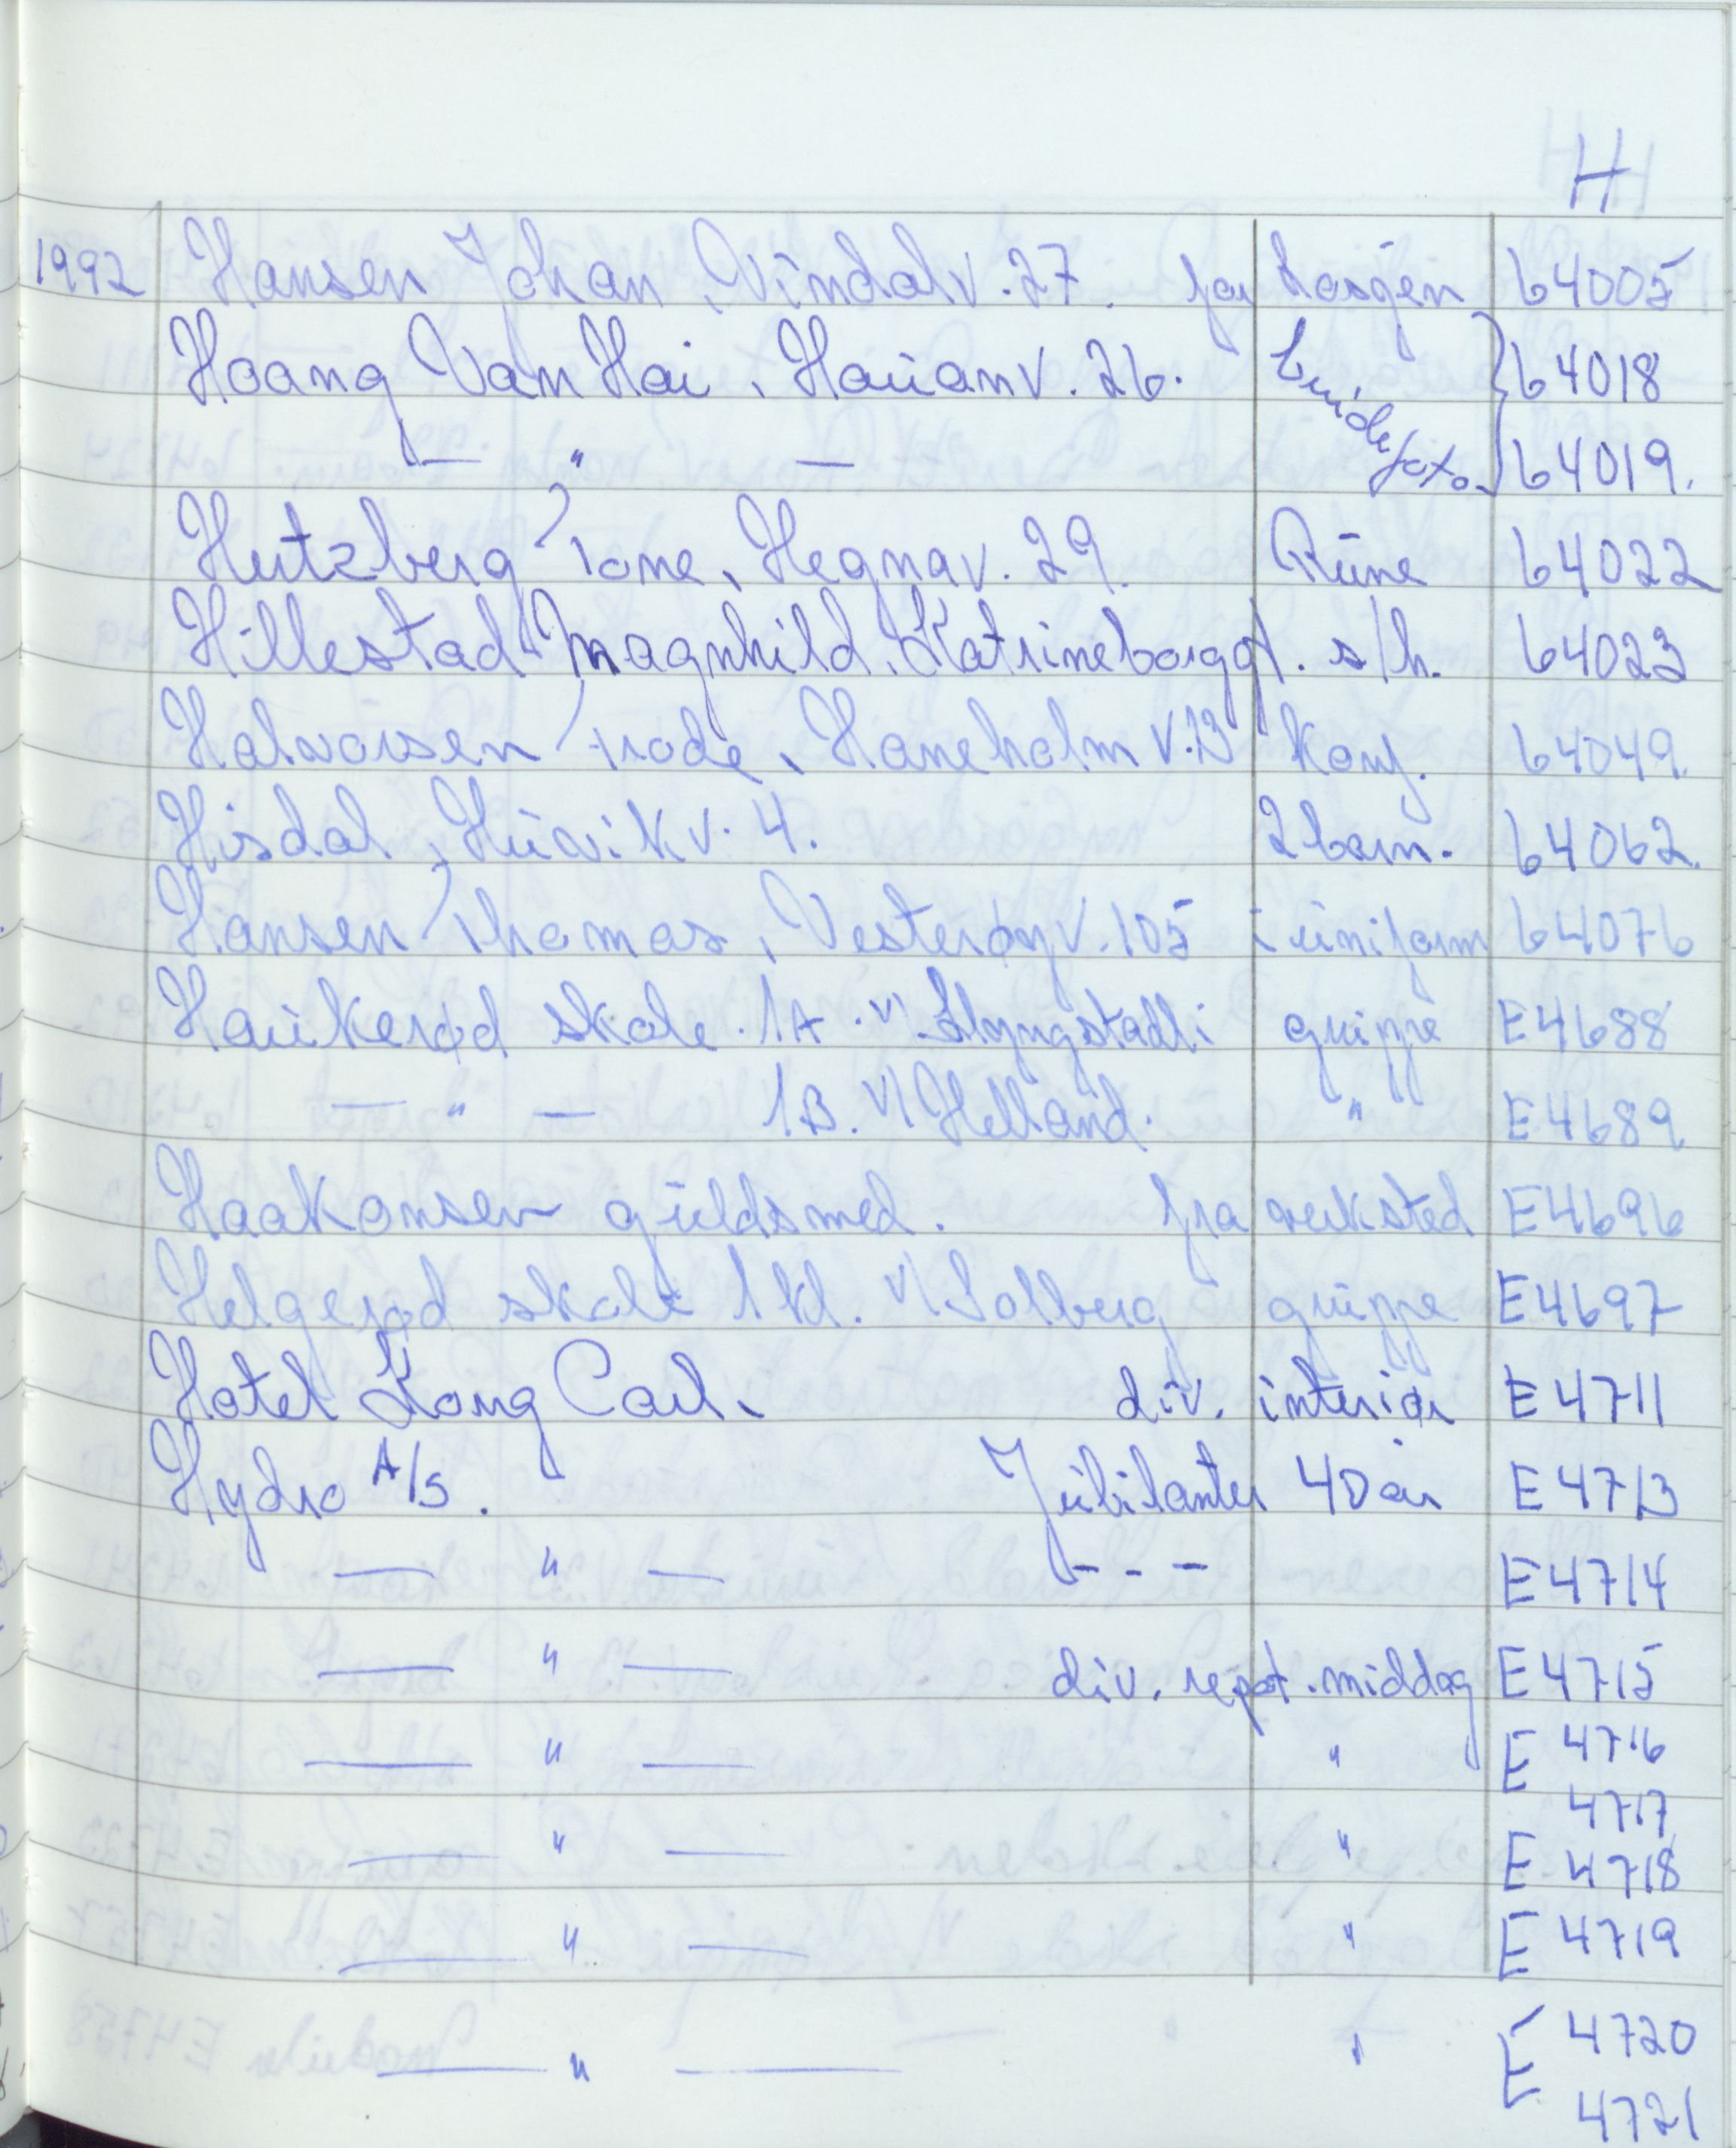 H
1992 Hansen Johan, Vindalv. 27. for Losjen 64005
Hoang Van Hai, Hauanv. 26. brudefoto. 64018
— " — 64019.
Hertzberg Tone, Hegnav. 29. Rune 64022
Hillestad Magnhild, Katrineborggt. s/h. 64023
Halvorsen Frode, Haneholmv. 13 Konf. 64049.
Hisdal, Huvikv. 4. 2 barn. 64062.
Hansen Thomas, Vesterøyv. 105 i uniform 64076
Haukerød skole. 1A. v/ Slyngstadli gruppe E4688
— " — 1B. v/ Helland. " E4689
Haakonsen gullsmed. fra verksted E4696
Helgerød skole 1 kl. v/ Solberg gruppe E4697
Hotel Kong Carl. div. interiør E4711
Hydro A/S. Jubilanter 40 år E4713
— " — - - - E4714
— " — div. repot. middag E4715
— " — " E 4716
4717
— " — " E 4718
— " — " E 4719
— " — " E 4720
4721